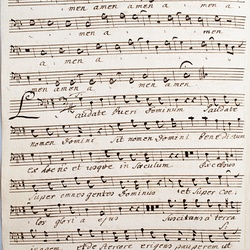 men amen a men a men
men amen amen a men
a men a men
men amen a men
Laudate Pueri Dominum Laudate
nomen Domine Sit nomen Domini Benedictum
Ex hoc nec et usque in Saeculum Excelsus
Super omnes gentes Dominus et Super Coe
los gloria ejus Suscitans a terra
inopem et de Stercore erigens pauperem ut